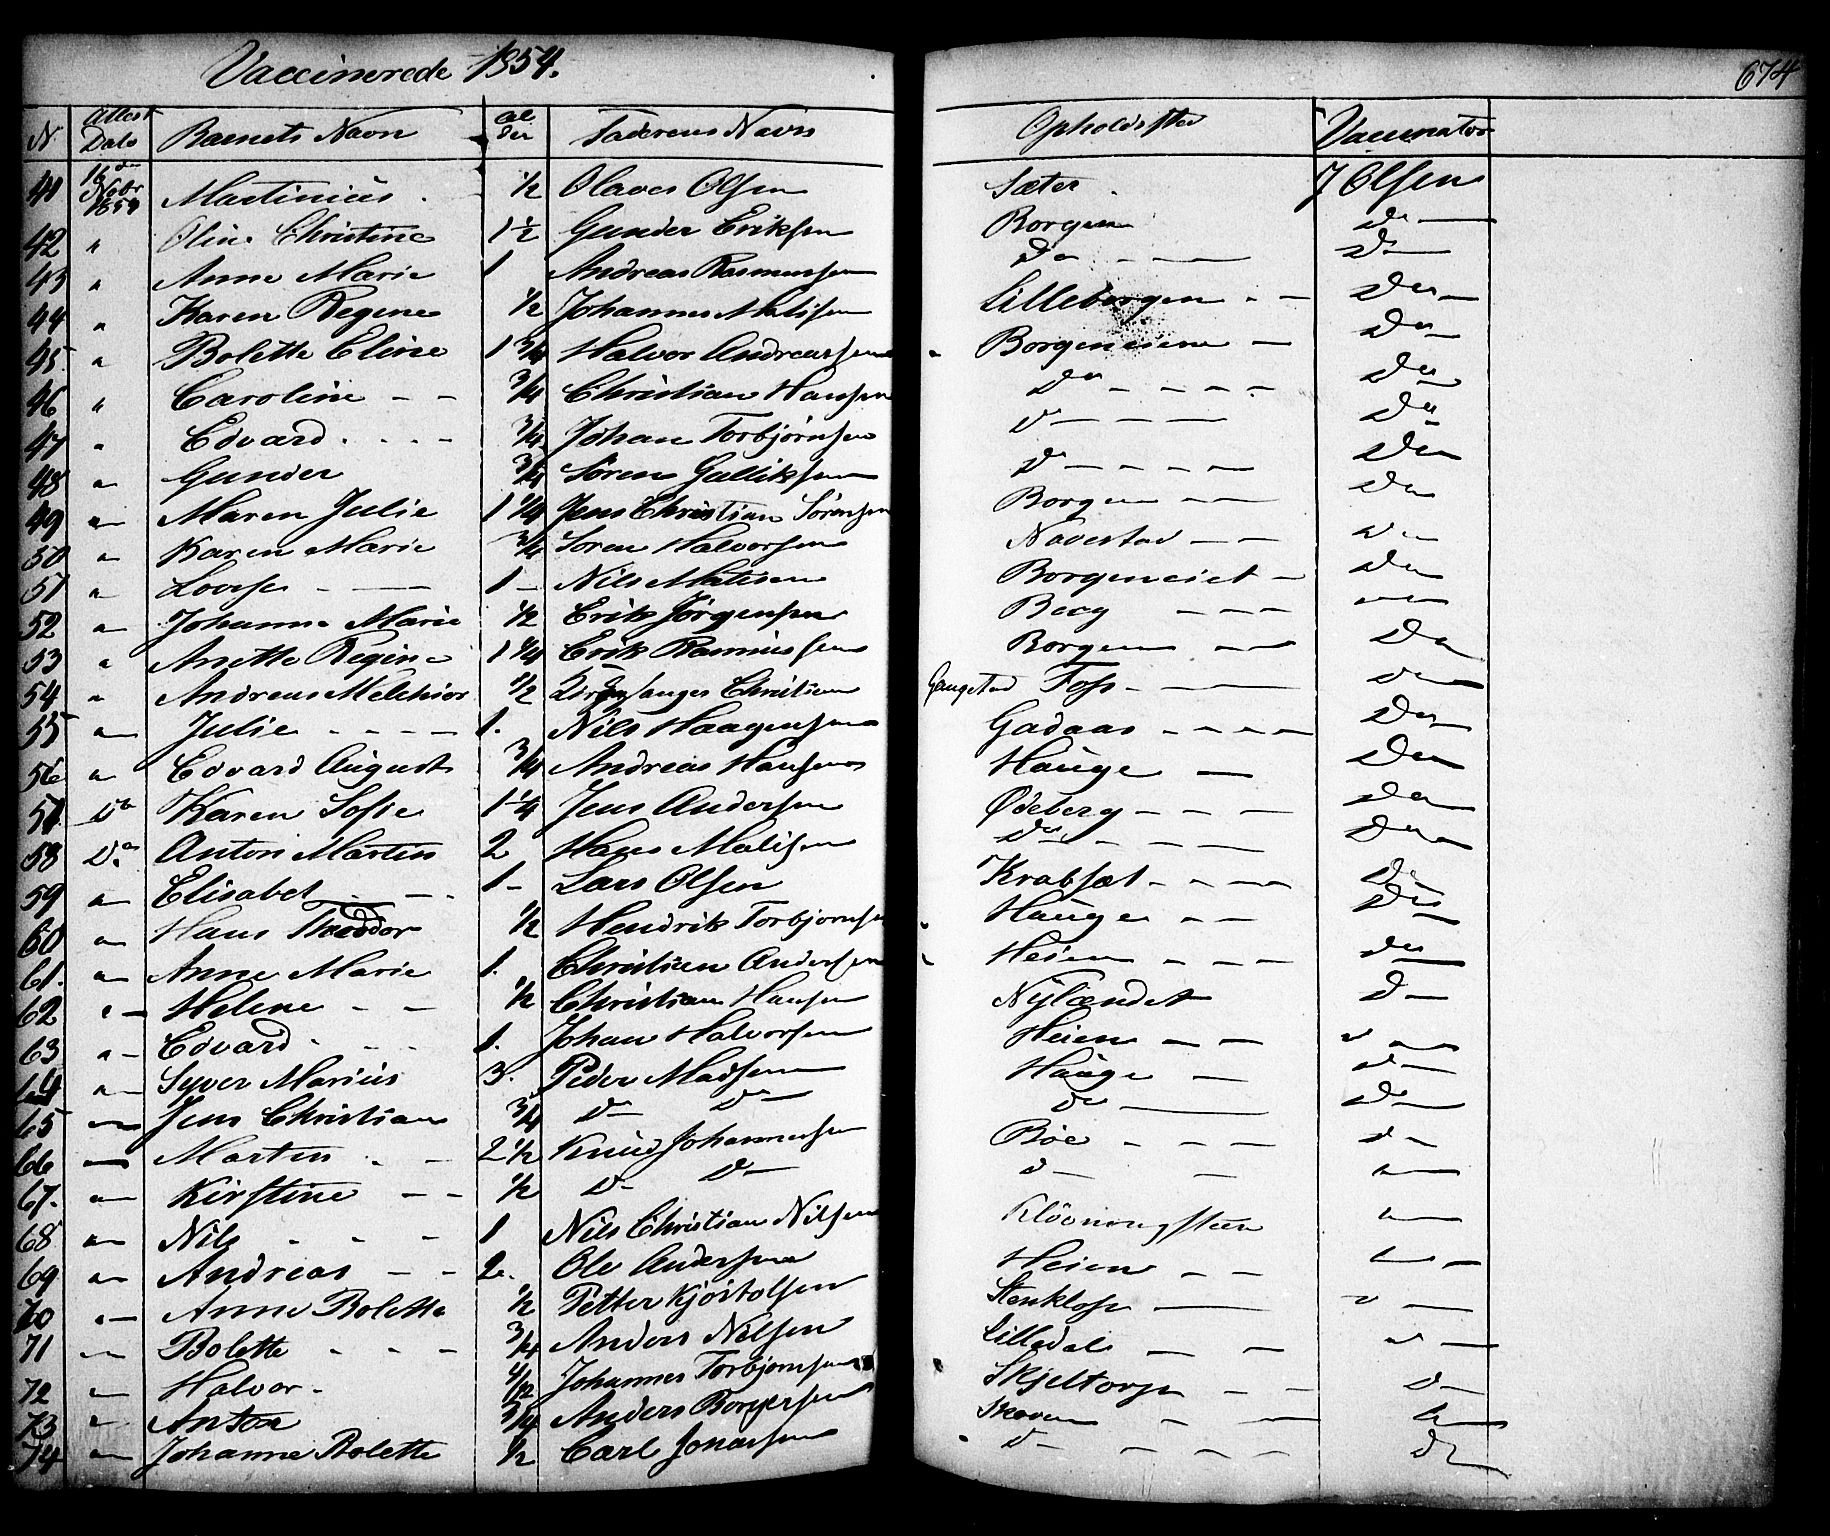 Vaccinerede 1854.
674
N Attest Dato Barnets Navn Alder Faderens Navn Opholdssted Vaccinator
41 16de Novbr 1854 Martinius 1/2 Olaves Olsen Sæter J Olsen
42 " Oline Christine 1 1/2 Gunder Eriksen Borgen Do
43 " Anne Marie 1 Andreas Rasmussen Do Do
44 " Karen Regine 1/2 Johannes Matisen Lilleborgen Do
45 " Bolette Eline 1 3/4 Halvor Andreassen Borgeneiene Do
46 " Caroline 3/4 Christian Hansen Do Do
47 " Edvard 3/4 Johan Torbjørnsen D Do
48 " Gunder 3/4 Søren Gulliksen D Do
49 " Maren Julie 1 1/4 Jens Christian Sørensen Borgen Do
50 " Karen Marie 3/4 Søren Halvorsen Navestad Do
51 " Lovise 1 Nils Matesen Borgeneiet Do
52 " Johanne Marie 1/2 Erik Jørgensen Berg "
53 " Anette Regine 1 1/4 Erik Rasmussen Borgen Do
54 " Andreas Melchior 1/2 Christian Gaugstad Foss Do
55 " Julie 1. Nils Haagensen Gadaas Do
56 " Edvard August 3/4 Andreas Hansen Hauge Do
57 Do Karen Sofie 1 1/4 Jens Andersen Ødeberg Do
58 Do Anton Martin 2 Hans Matisen Do Do
59 " Elisabet 1 Lars Olsen Krabsæt Do
60 " Hans Theodor 1/2 Hendrik Torbjørnsen Hauge Do
61. " Anne Marie 1. Christian Andersen Heien Do
62 " Helene 1/2 Christian Hansen Nylændet D
63 " Edvard 1. Johan Halvorsen Heien "
64 " Syver Marius 3. Peder Madsen Hauge D
65 " Jens Christian 3/4 D D Do D
66 " Martin 2 1/2 Knud Johannesen Böe D
67. " Kirstine 1/2 D D D "
68 " Nils 1 Nils Christian Nilsen Klövningsteen "
69 " Andreas 2. Ole Andersen Heien "
70 " Anne Bolette 1/2 Petter Kjöstolsen Stenklosp "
71 " Bolette 3/4 Anders Nilsen Lilledal "
72 " Halvor 4/12 Johannes Torbjørnsen Skjeltorp D
73 " Anton 3/4 Anders Borgersen Skoven "
74 " Johanne Bolette 1/2 Carl Jonassen D D